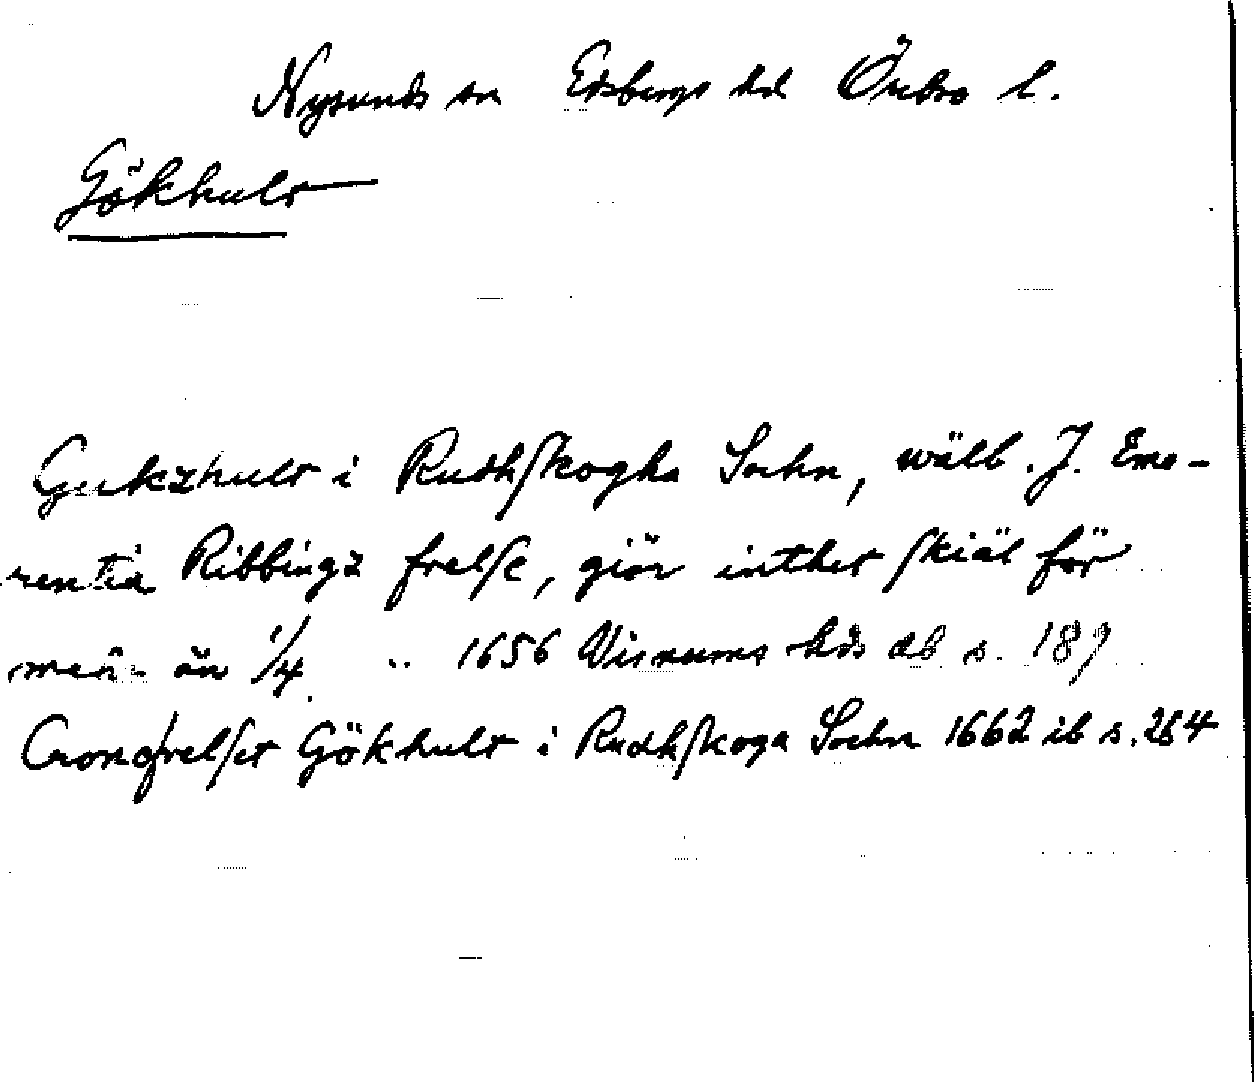 Nysunds sn Edsbergs hd Örebro l.
Gökhult
Gukzhult i Rudhskogha Sochn, wälb. J. Eme-
rentia Ribbingz frelse, giör inthet skiäl för
meer än 1/4 .. 1656 Visnums hds db s. 189
Cronofrelset Gökhult i Rudhskoga Sochn 1662 ib s. 264